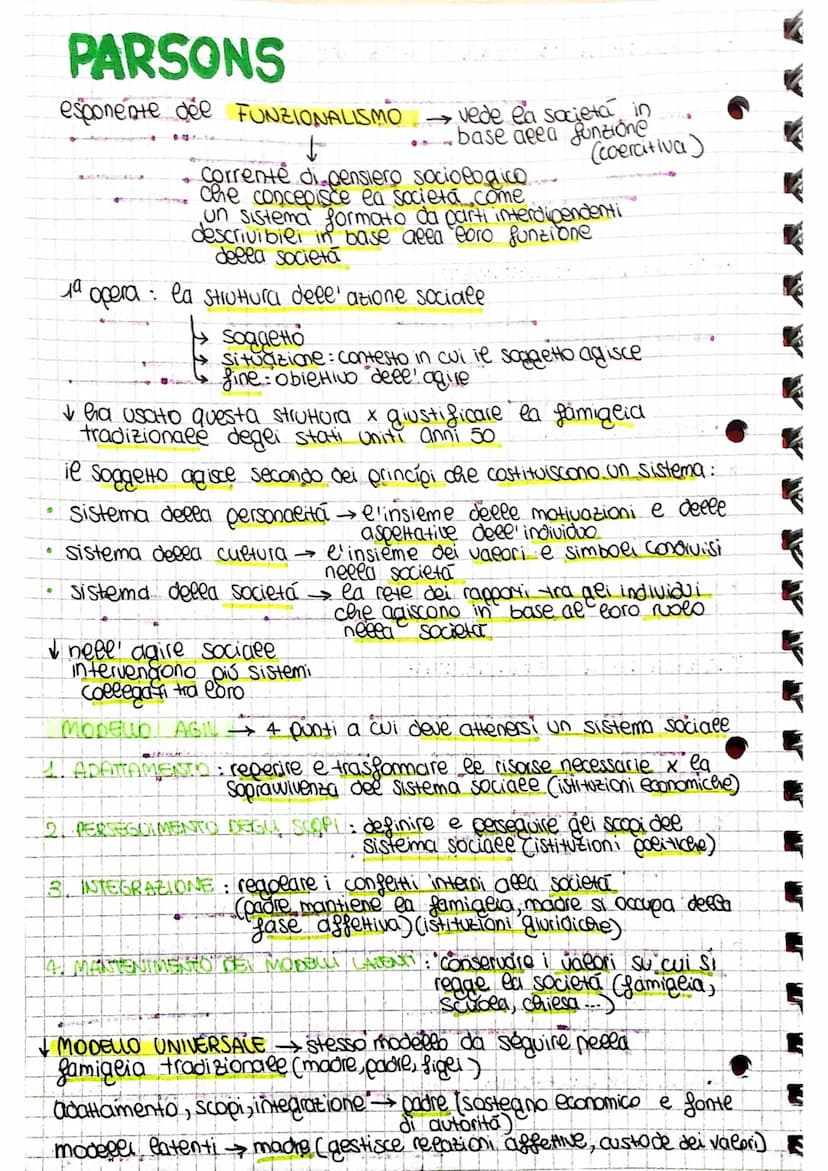 PARSONS
esponente del FUNZIONALISMO → vede la società in
base alla funzione
(coercitiva)
↓
corrente di pensiero sociologico
che concepisce la società come
un sistema formato da parti interdipendenti
descrivibili in base alla loro funzione
della società
1ª opera : la struttura dell'azione sociale
↳ soggetto
↳ situazione : contesto in cui il soggetto agisce
↳ fine : obiettivo dell'agire
↓ ha usato questa struttura x giustificare la famiglia
tradizionale degli stati uniti anni 50
il soggetto agisce secondo dei princípi che costituiscono un sistema :
• sistema della personalità → l'insieme delle motivazioni e delle
aspettative dell'individuo
• sistema della cultura → l'insieme dei valori e simboli condivisi
nella società
• sistema della società → la rete dei rapporti tra gli individui
che agiscono in base al loro ruolo
nella società
↓ nell'agire sociale
intervengono più sistemi
collegati tra loro
MODELLO AGIL → 4 punti a cui deve attenersi un sistema sociale
1. ADATTAMENTO : reperire e trasformare le risorse necessarie x la
sopravvivenza del sistema sociale (istituzioni economiche)
2. PERSEGUIMENTO DEGLI SCOPI : definire e perseguire gli scopi del
sistema sociale (istituzioni politiche)
3. INTEGRAZIONE : regolare i conflitti interni alla società
(padre mantiene la famiglia, madre si occupa della
fase affettiva) (istituzioni giuridiche)
4. MANTENIMENTO DEI MODELLI LATENTI : conservare i valori su cui si
regge la società (famiglia,
scuola, chiesa ...)
↓ MODELLO UNIVERSALE → stesso modello da seguire nella
famiglia tradizionale (madre, padre, figli)
adattamento, scopi, integrazione → padre (sostegno economico e fonte
di autorità)
modelli latenti → madre (gestisce relazioni affettive, custode dei valori)